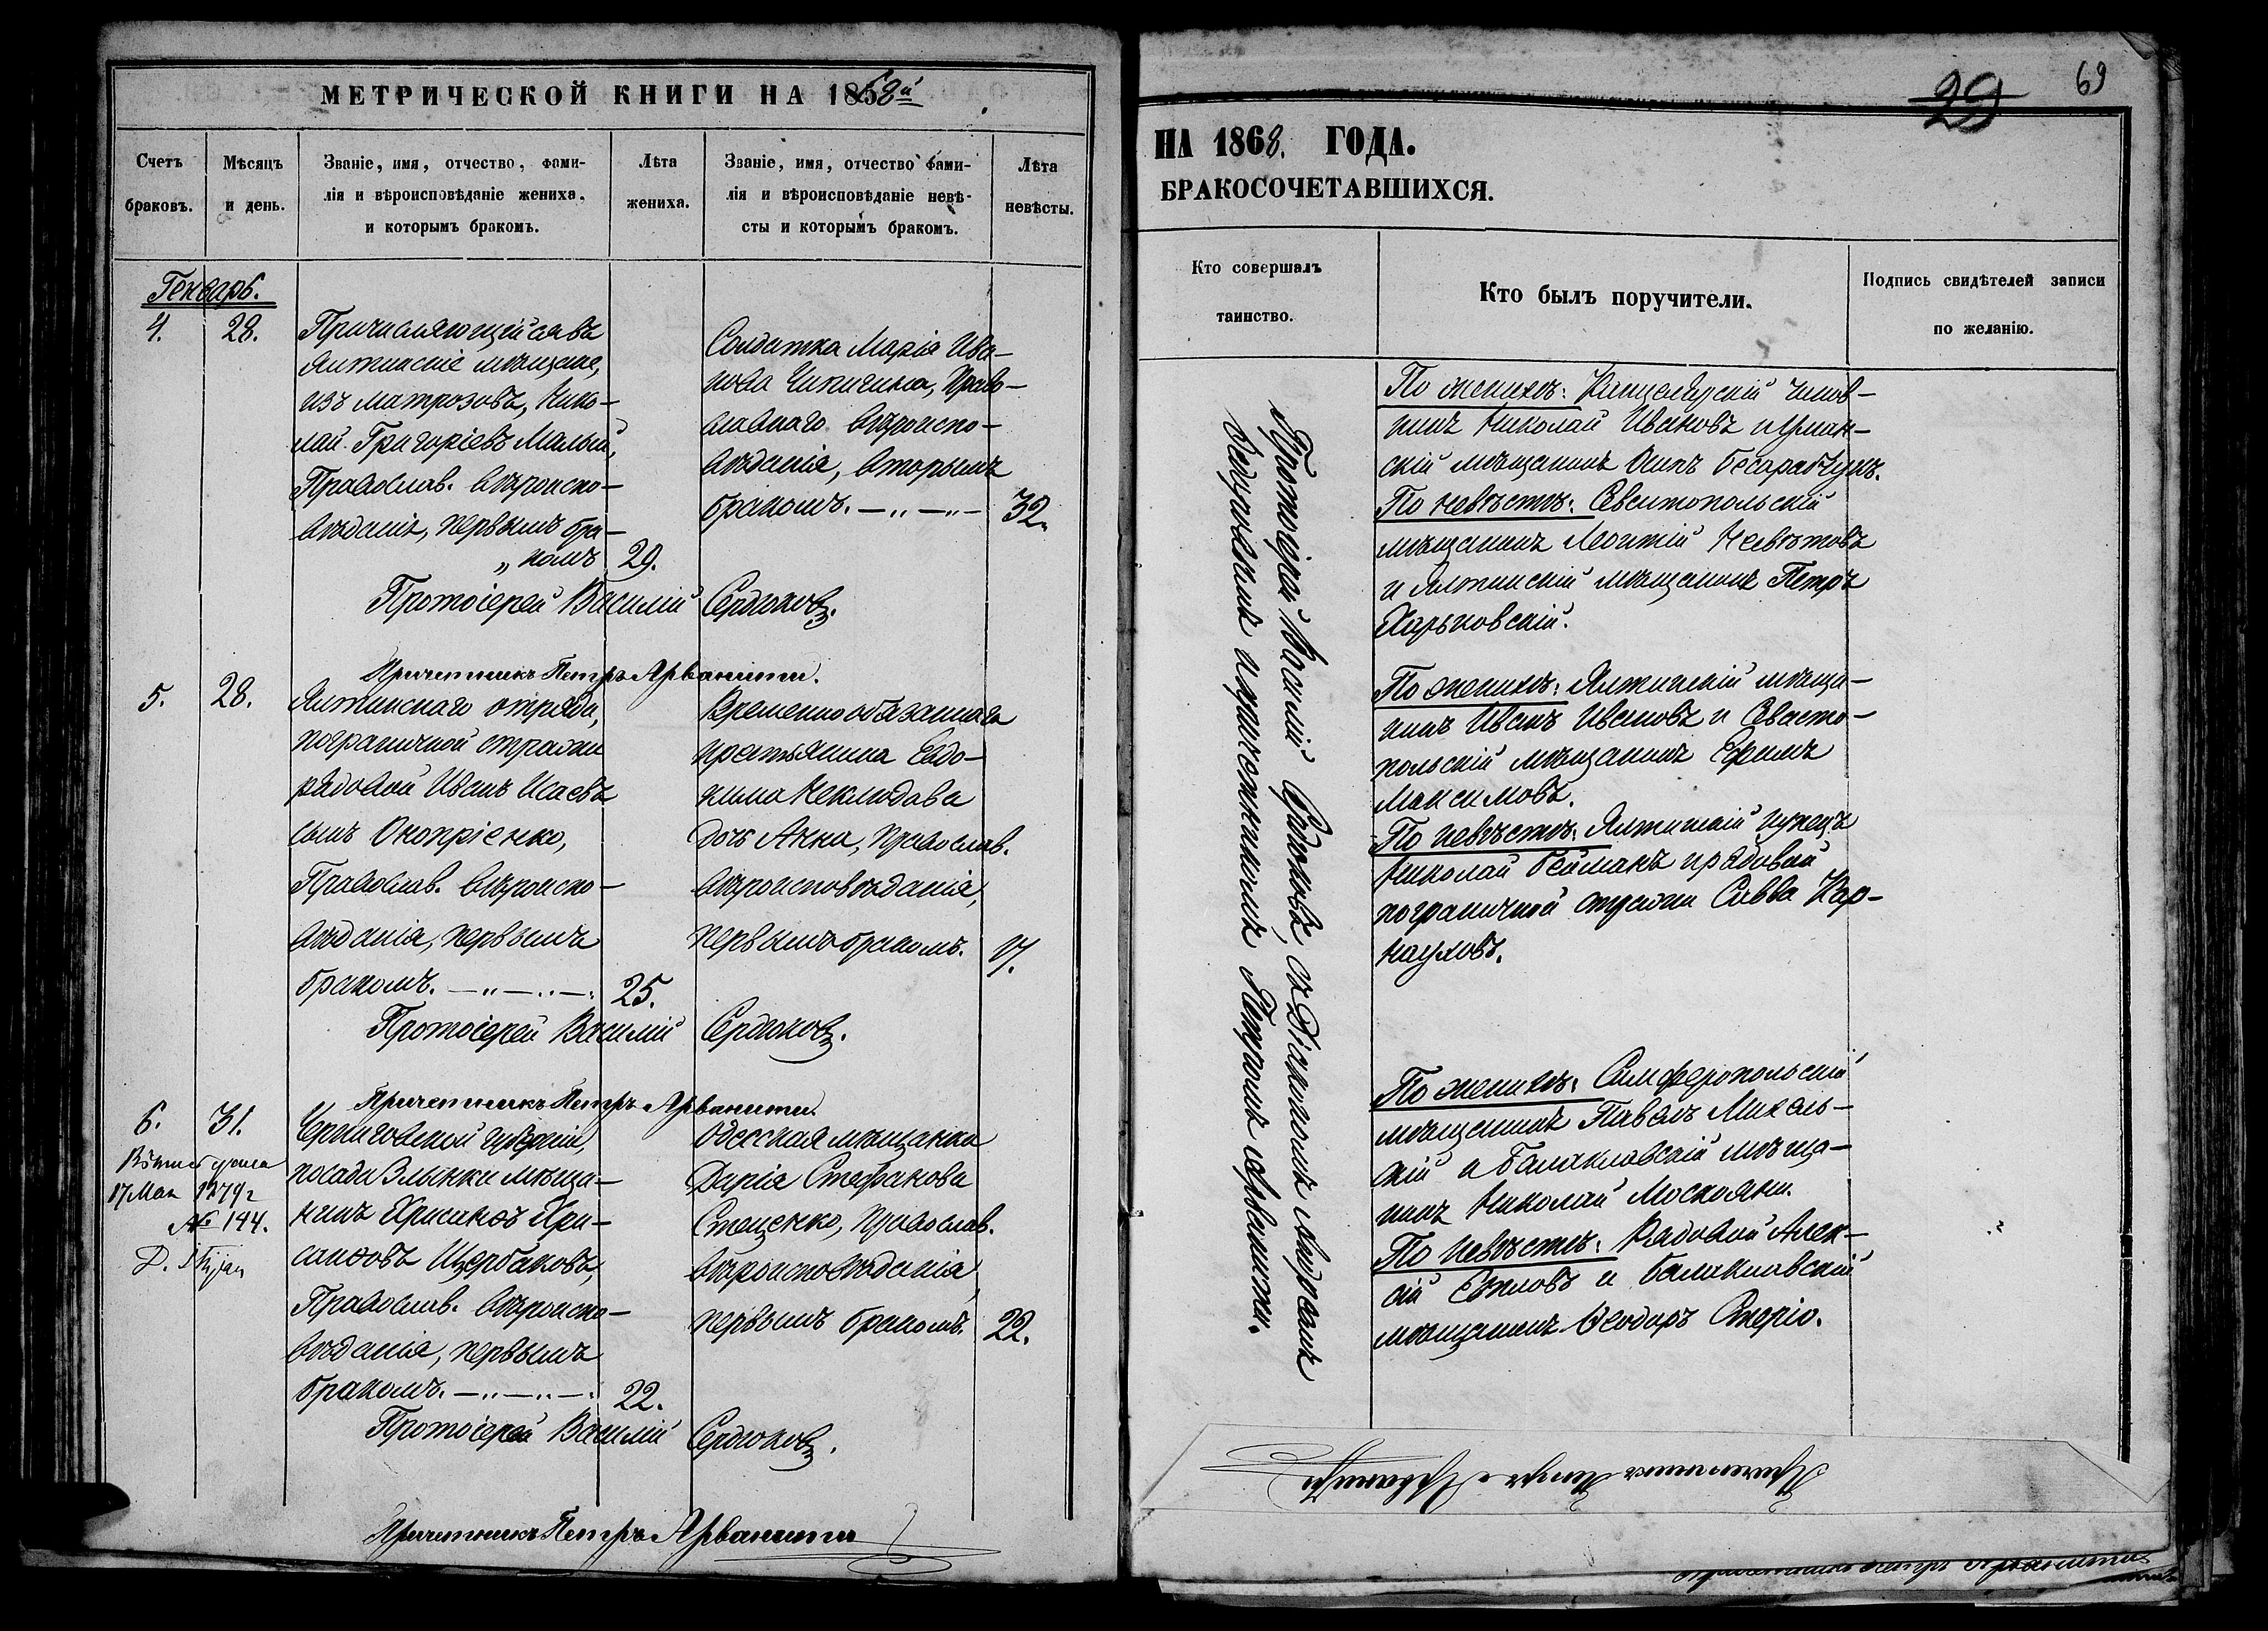 МЕТРИЧЕСКОЙ КНИГИ НА 1868й
Счетъ браковъ.
Мѣсяцъ и день.
Званіе, имя, отчество, фами-
лія и вѣроисповѣданіе жениха,
и которымъ бракомъ.
Лѣта жениха.
Званіе, имя, отчество фами-
лія и вѣроисповѣданіе невѣ-
сты и которымъ бракомъ.
Лѣта невѣсты.
Генварь.
4.
28.
Причисляющійся въ
Ялтинскіе мѣщане,
изъ матрозовъ, Нико-
лай Григоріевъ Малый,
Православ. вѣроиспо-
вѣданія, первымъ бра-
„ комъ
29.
Солдатка Марія Ива-
нова Чипигина, право-
славнаго вѣроиспо-
вѣданія, вторымъ
бракомъ. — „ — „ —
32.
Протоіерей Василій Сердюковъ.
Причетникъ Петръ Арванити.
5.
28.
Ялтинскаго отряда,
пограничной стражи
рядовой Иванъ Исаевъ
сынъ Оноприенко,
Православ. вѣроиспо-
вѣданія, первымъ
бракомъ. — „ — „ —
25.
Временнообязаннаго
крестьянина Евдо-
кима Неклюдова
дочь Анна, православ.
вѣроисповѣданія,
первымъ бракомъ.
17.
Протоіерей Василій Сердюковъ.
Причетникъ Петръ Арванити.
6.
31.
17 Мая 1879 г
№ 144.
Черниговской губерніи,
посада Злынки мѣща-
нинъ Хрисанфъ Хри-
санфовъ Щербаковъ,
Православ. вѣроиспо-
вѣданія, первымъ
бракомъ. — „ — „ —
22.
Одесская мѣщанка
Дарія Стефанова
Стеценко, православ.
вѣроисповѣданія,
первымъ бракомъ.
22.
Протоіерей Василій Сердюковъ.
Причетникъ Петръ Арванити
29
69
НА 1868. ГОДА.
БРАКОСОЧЕТАВШИХСЯ.
Кто совершалъ
таинство.
Кто былъ поручители.
Подпись свидѣтелей записи
по желанію.
Протоіерей Василій Сердюковъ, съ Діакономъ Андреемъ
и причетникомъ Петромъ Арванити.
По женихѣ: Канцелярскій чинов-
никъ Николай Ивановъ и Уман-
скій мѣщанинъ Осипъ Бесарабчукъ.
По невѣстѣ: Севастопольскій
мѣщанинъ Леонтій Невѣтовъ
и Ялтинскій мѣщанинъ Петръ
Харьковскій.
По женихѣ: Ялтинскій мѣща-
нинъ Иванъ Ивановъ и Севасто-
польскій мѣщанинъ Ефимъ
Максимовъ.
По невѣстѣ: Ялтинскій купецъ
Николай Рейманъ и рядовой
пограничной стражи Савва Кар-
науховъ.
По женихѣ: Симферопольскій
мѣщанинъ Павелъ Михаль-
скій и Балаклавскій мѣща-
нинъ Николай Москояни.
По невѣстѣ: Рядовой Алек-
сѣй и Балаклавскій
мѣщанинъ Ѳеодоръ Стеріо.
Причетникъ Петръ Арванити
Причетникъ Петръ Арванити